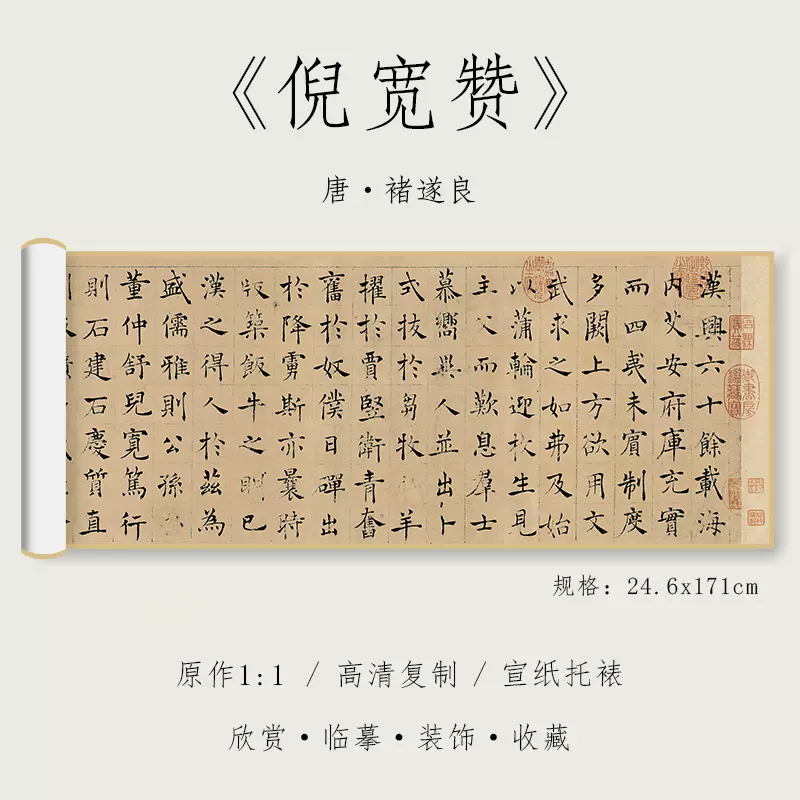 《倪宽赞》
唐·褚遂良
漢興六十餘載海
内艾安府庫充實
而四夷未賓制度
多闕上方欲用文
武求之如弗及始
以蒲輪迎枚生見
主父而歎息羣士
慕嚮異人並出卜
式拔於芻牧羊
擢於賈豎衛青奮
舊於奴僕日磾出
於降虜斯亦曩時
版築飯牛之朋已
漢之得人於茲為
盛儒雅則公孫
董仲舒兒寬篤行
則石建石慶質直
规格：24.6x171cm
原作1:1 / 高清复制 / 宣纸托裱
欣赏·临摹·装饰·收藏